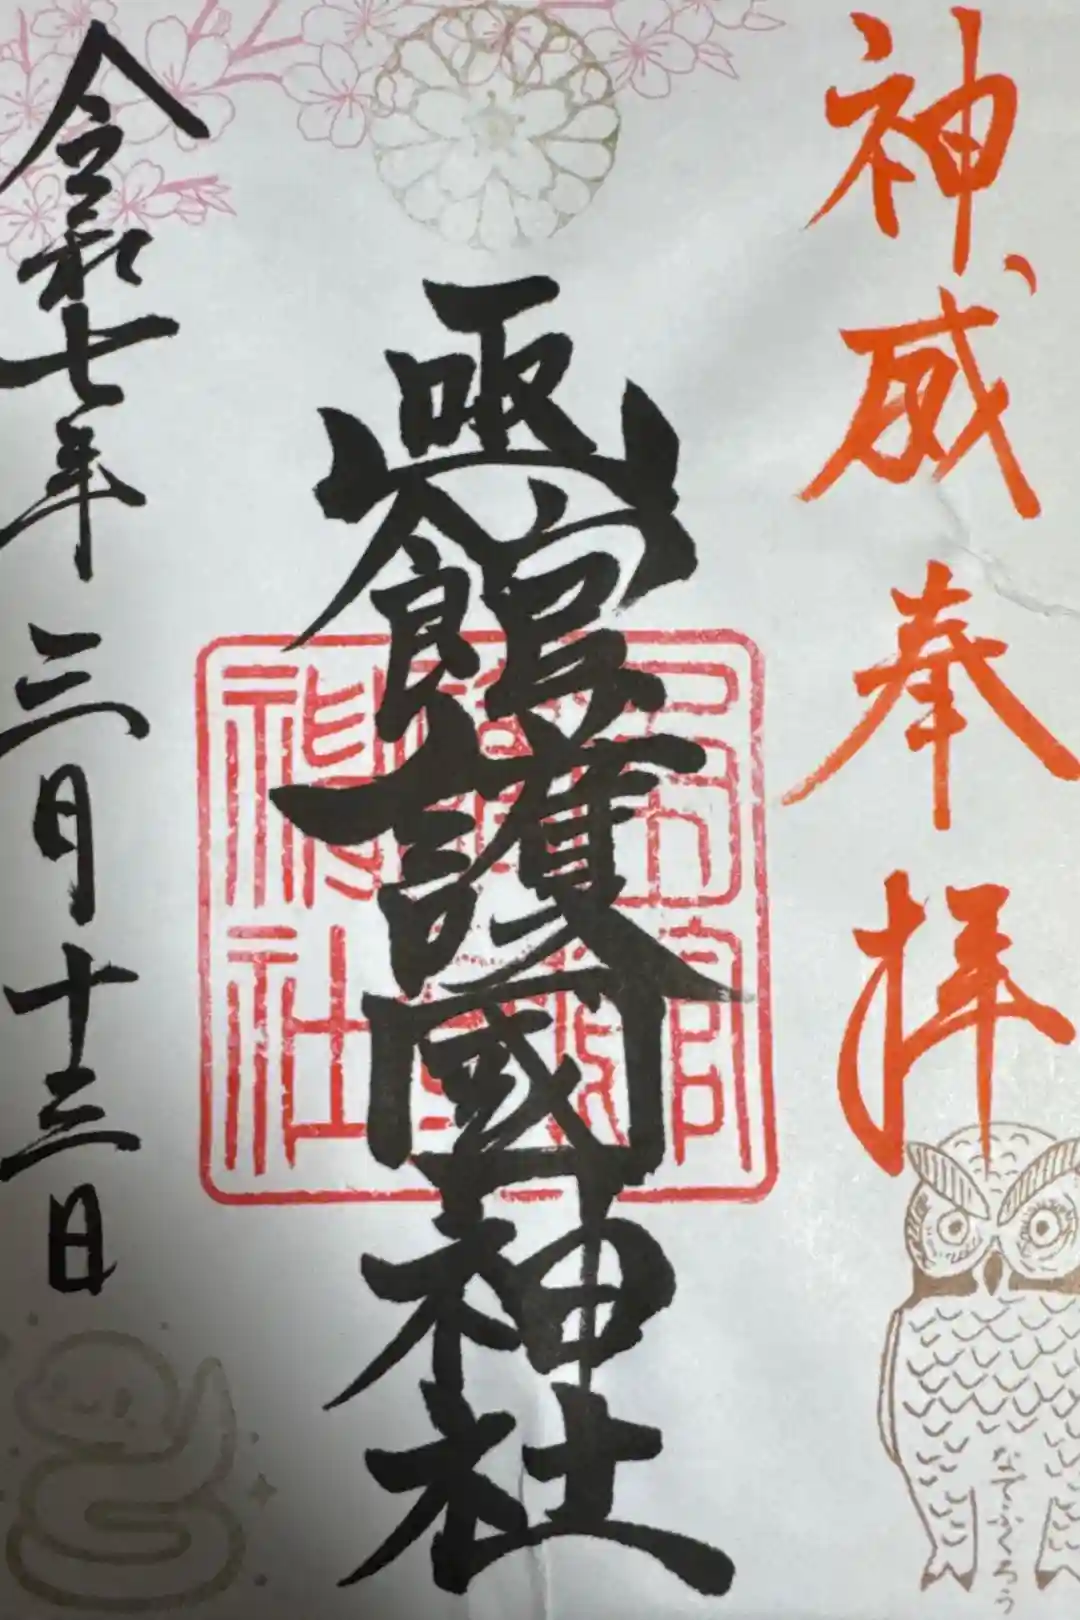 神威奉拝
なでふくろう
函館護國神社
神社
令和七年三月十三日